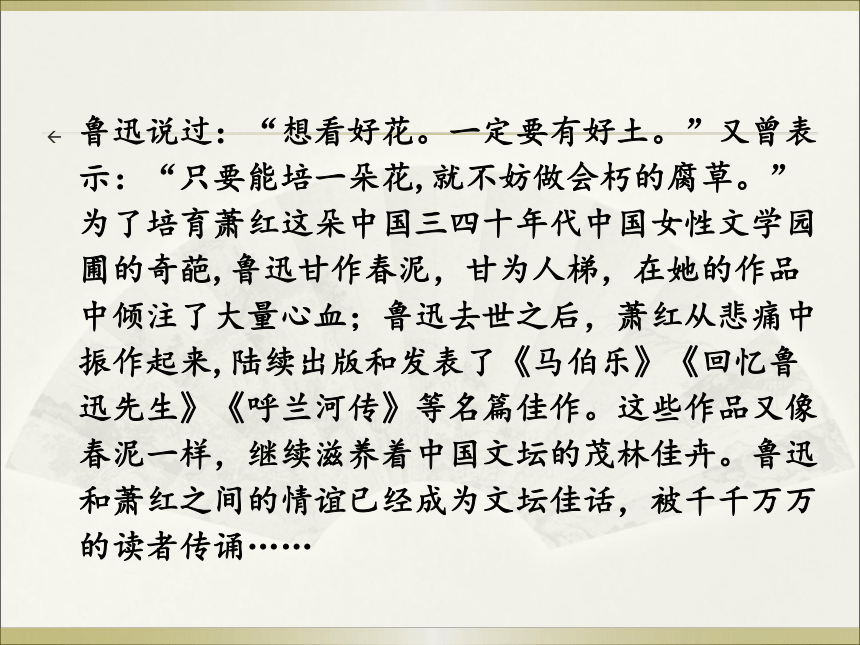 鲁迅说过：“想看好花。一定要有好土。”又曾表
示：“只要能培一朵花,就不妨做会朽的腐草。”
为了培育萧红这朵中国三四十年代中国女性文学园
圃的奇葩,鲁迅甘作春泥，甘为人梯，在她的作品
中倾注了大量心血；鲁迅去世之后，萧红从悲痛中
振作起来,陆续出版和发表了《马伯乐》《回忆鲁
迅先生》《呼兰河传》等名篇佳作。这些作品又像
春泥一样，继续滋养着中国文坛的茂林佳卉。鲁迅
和萧红之间的情谊已经成为文坛佳话，被千千万万
的读者传诵……